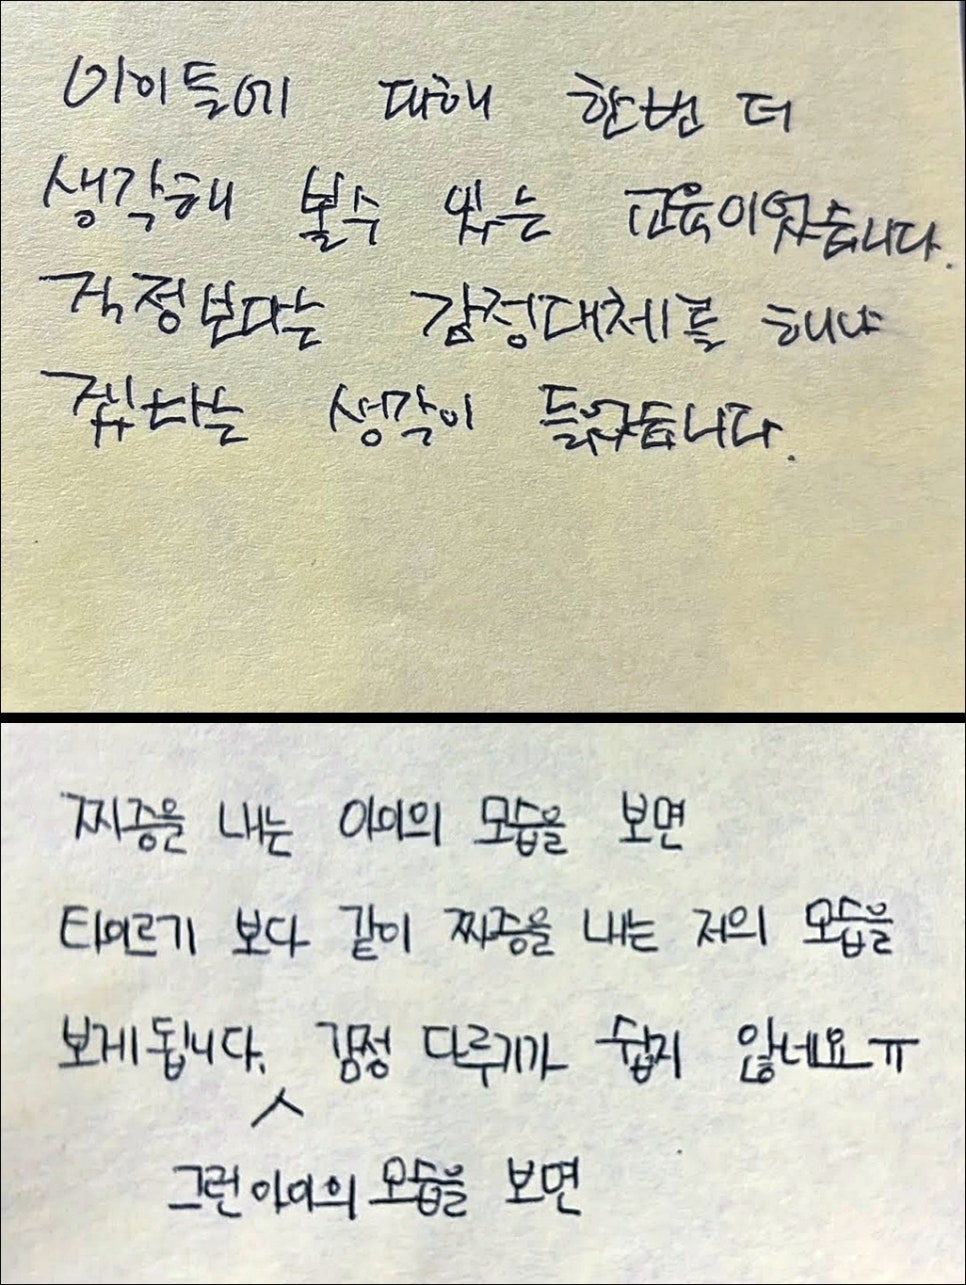 아이들에 대해 한번 더
생각해 볼수 있는 교육이었습니다.
걱정보다는 감정대체를 해야
겠다는 생각이 들었습니다.
찌증을 내는 아이의 모습을 보면
타이르기 보다 같이 짜증을 내는 저의 모습을
보게됩니다. 감정 다루기가 쉽지 않네요ㅠ
그런 아이의 모습을 보면